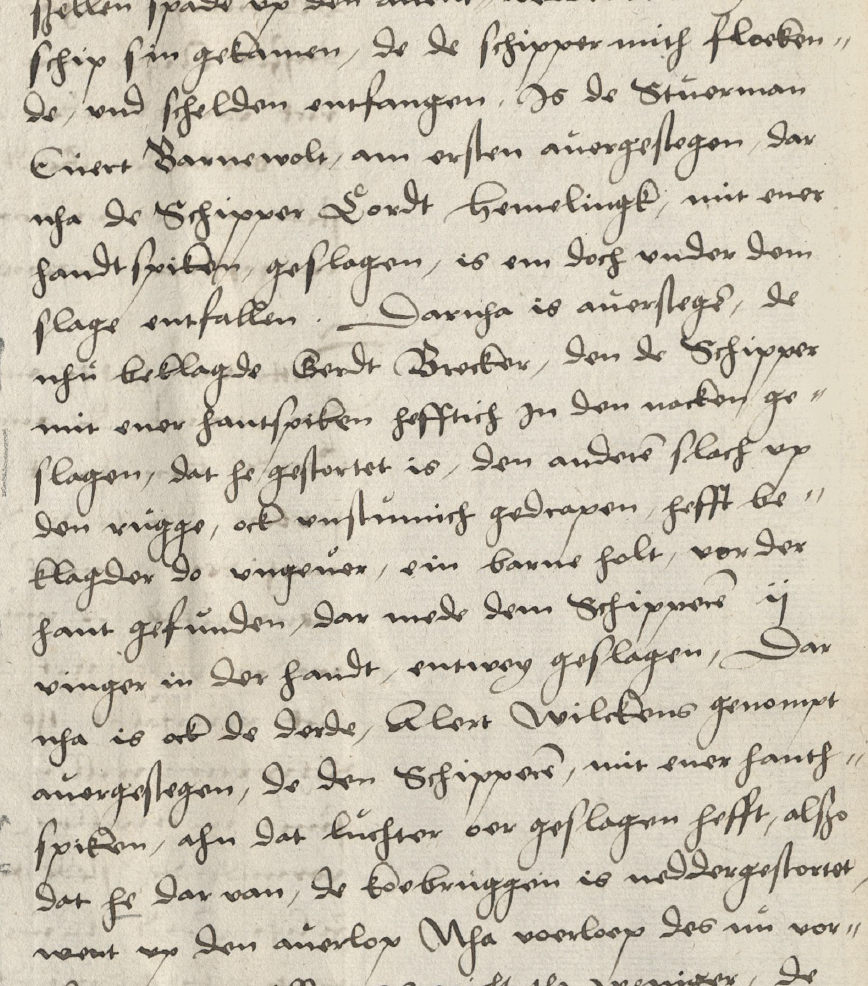 schip sin gekamen, de de schipper mith floeken〃
de, vnd schelden entfangen, Is de Stuerman
Euert Barnewolt, am ersten auergestegen, dar
nha de Schipper Cordt Hemelingk, mit ener
handtspiken, geslagen, is em doch vnder dem
slage entfallen. Darnha is auerstegē, de
nhu beklagde Gerdt Brecker, den de Schipper
mit ener hantspiken hefftich In den nacken ge〃
slagen, dat he gestortet is, den anderē slach vp
den rugge, ock vnstumich gedrapen, hefft be〃
klagder do vngeuer, ein barne holt, vor der
hant gefunden, dar mede dem Schipperē ij
vinger in der handt, entwey geslagen, Dar
nha is ock de derde, Alert Wilckens genompt
auergestegen, de den Schipperē, mit ener hanth〃
spiken, ahn dat luchter oer geslagen hefft, alßo
dat he dar van, de koebruggen is neddergestortet,
went vp den auerlop Nha voerloep des nu vor〃